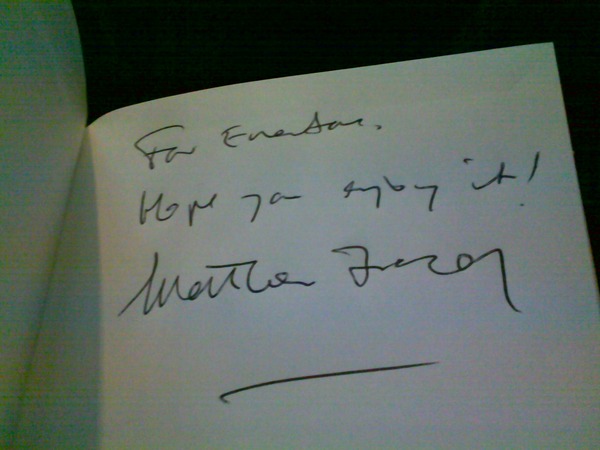 For Everton.
Hope you enjoy it!
Matthew